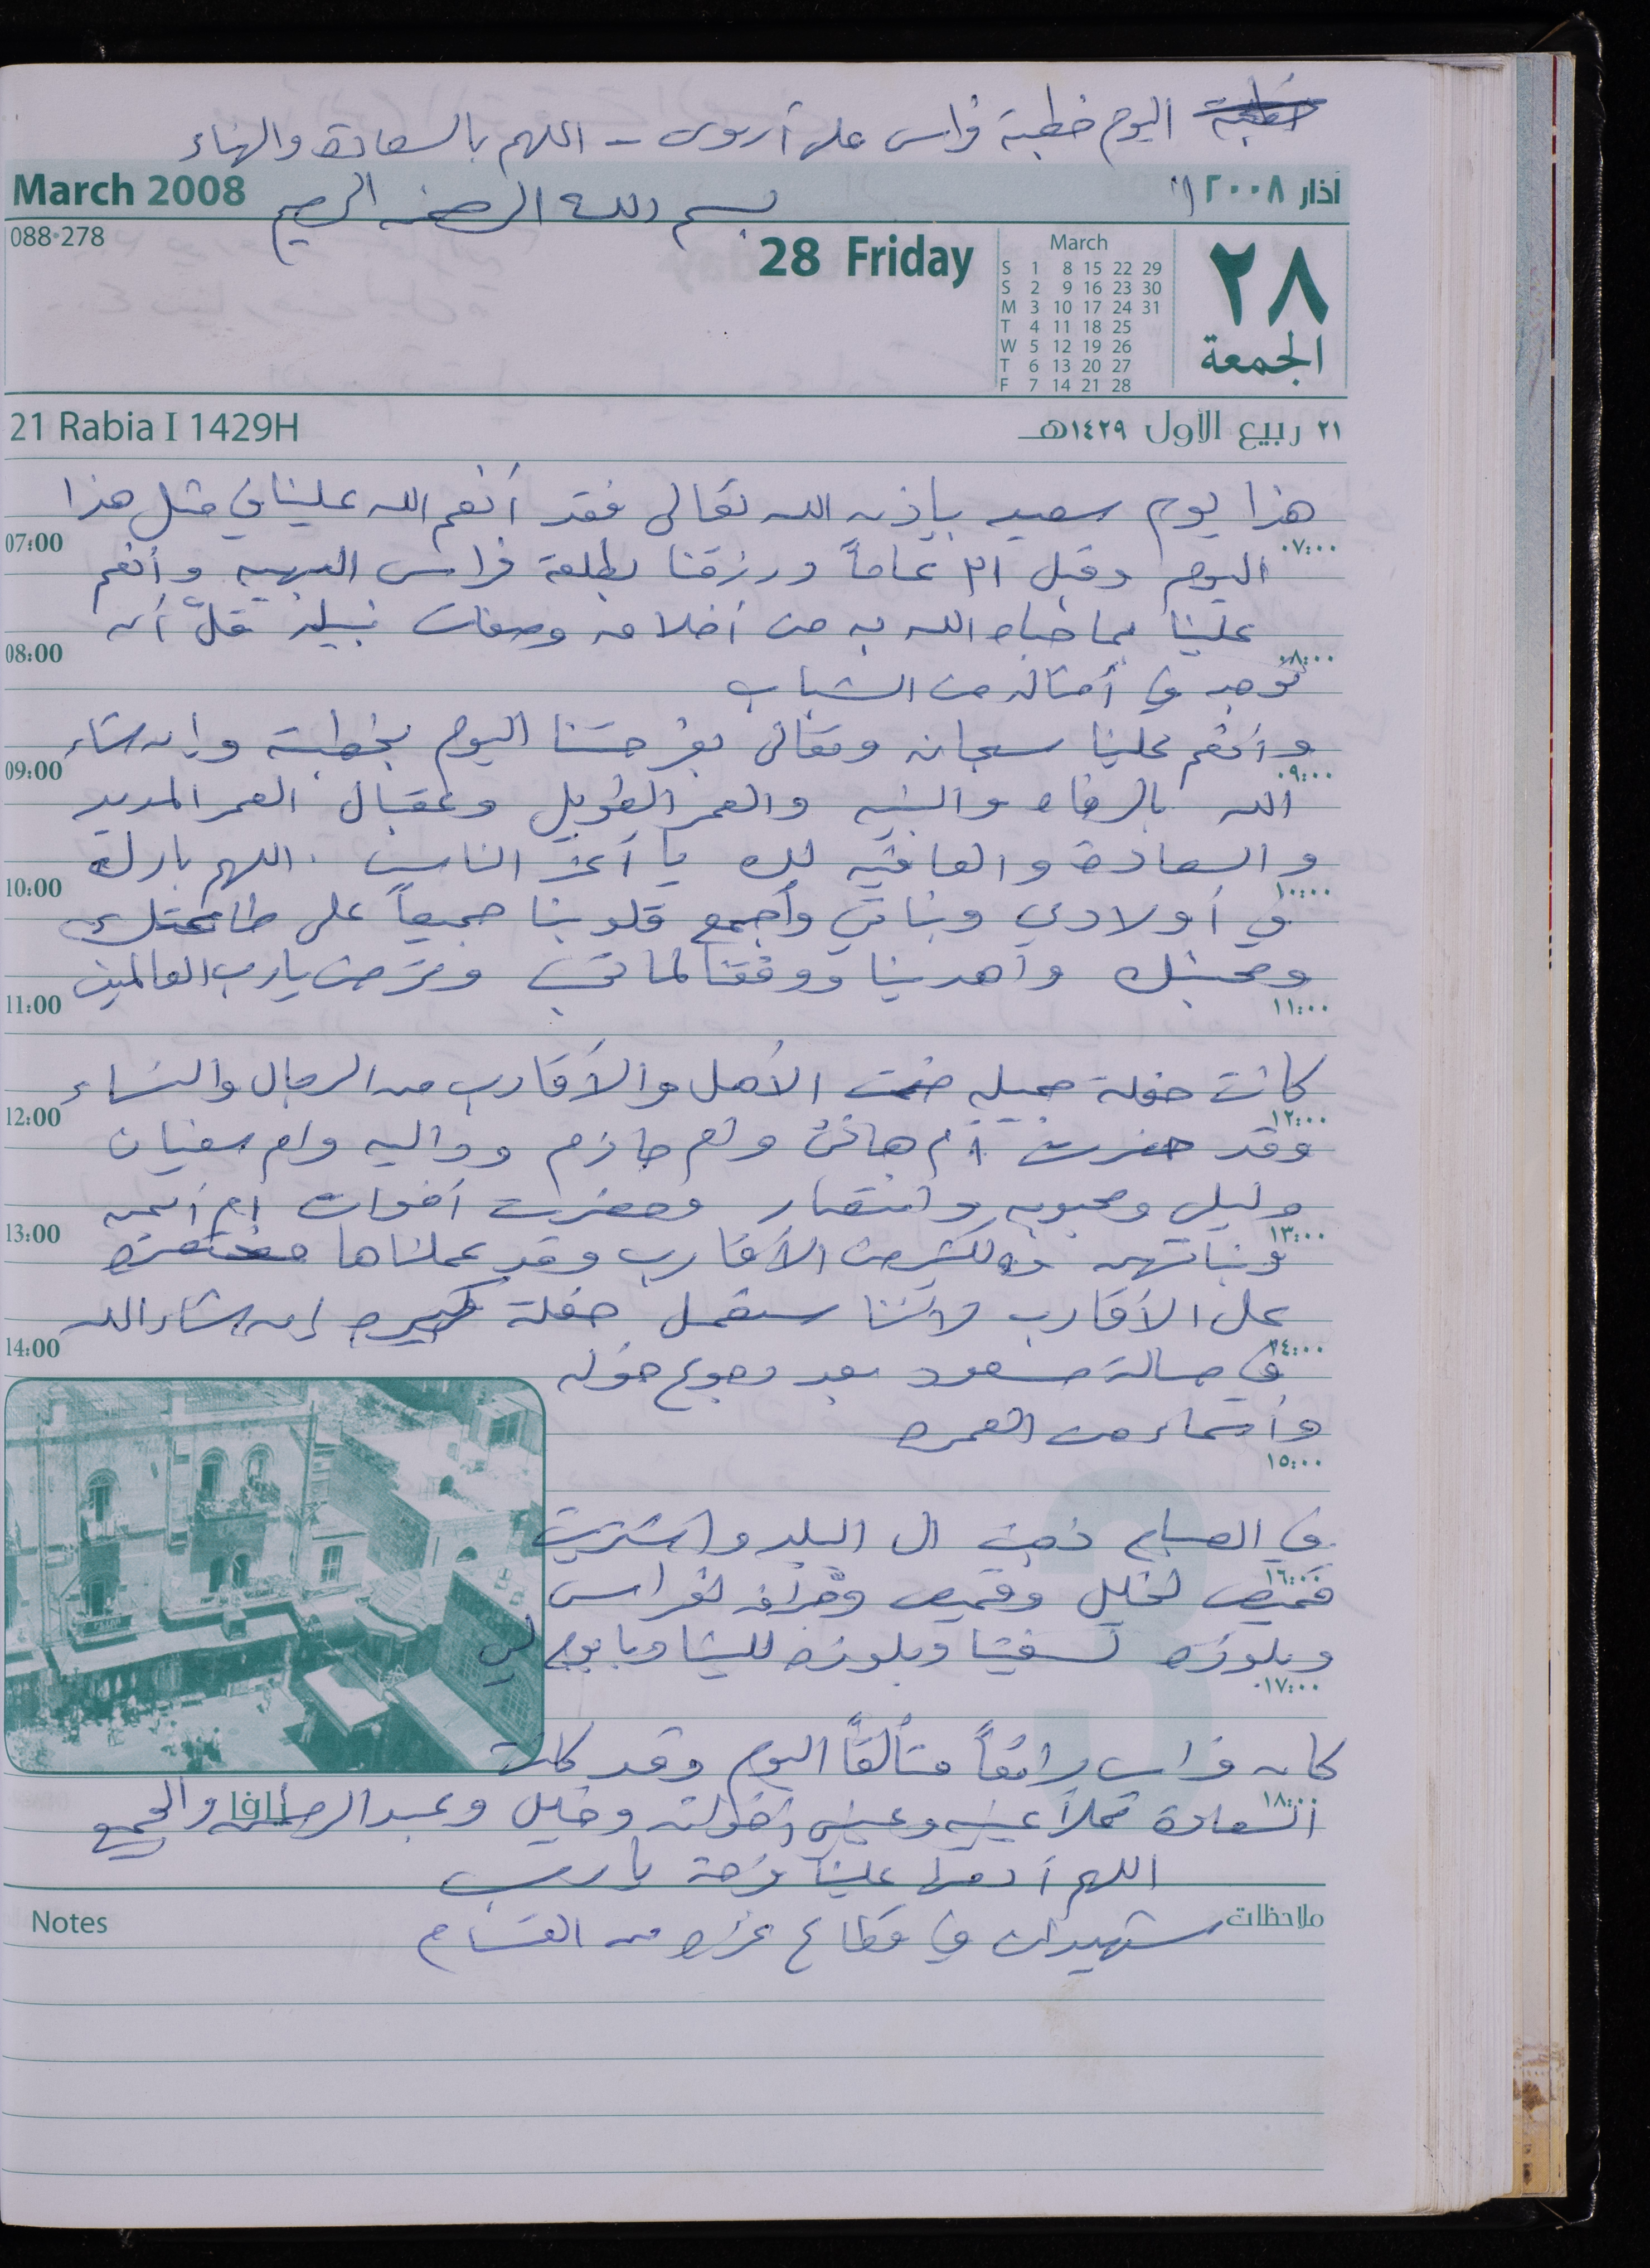 خطبة اليوم خطبة فراس على أروى - اللهم بالسعادة والهناء
March 2008 بسم الله الرحمن الرحيم آذار ٢٠٠٨
088-278
28 Friday
March
S 1 8 15 22 29
S 2 9 16 23 30
M 3 10 17 24 31
T 4 11 18 25
W 5 12 19 26
T 6 13 20 27
F 7 14 21 28
٢٨
الجمعة
21 Rabia I 1429H ٢١ ربيع الأول ١٤٢٩هـ
هذا يوم سعيد بإذن الله تعالى فقد أنعم الله علينا في مثل هذا
07:00 ٠٧:٠٠
اليوم وقبل ٣١ عاماً ورزقنا بطلعة فراس البهيه وأنعم
علينا بما حباه الله به من أخلاق وصفات نبيله قلّ أن
08:00 ٠٨:٠٠
توجد في أمثاله من الشباب
وأنعم علينا سبحانه وتعالى بفرحتنا اليوم بخطبته وإن شاء
09:00 ٠٩:٠٠
الله بالرفاه والبنين والعمر الطويل وعقبال العمر المديد
والسعادة والعافيه لك يا أعز الناس . اللهم بارك
10:00 ١٠:٠٠
في أولادي وبناتي وأجمع قلوبنا جميعاً على طاعتك
ومحبتك وأهدينا ووفقنا لما تحب وترضى يارب العالمين
11:00 ١١:٠٠
كانت حفلة جميله ضمت الأهل والأقارب من الرجال والنساء
12:00 ١٢:٠٠
وقد حضرت أم هاني وام حازم وداليه وام سفيان
وليلى ومحبوبه وانتصار وحضرت أخوات ام أيمن
13:00 ١٣:٠٠
وبناتهن والكثير من الأقارب وقد عملناها مختصره
على الأقارب لأننا سنعمل حفلة كبيره إن شاء الله
14:00 ١٤:٠٠
في صالة مسعود بعد رجوع خوله
وأسماء من العمره
١٥:٠٠
في الصباح ذهبت الى البلد واشتريت
١٦:٠٠
قميص لخليل وقميص وجرافه لفراس
وبلوزه لسفيتا وبلوزه للينا وبابوج لي
١٧:٠٠
كان فراس رائعاً متألقاً اليوم وقد كانت
١٨:٠٠
السعادة تملأ عينيه وعيني أخواته وخليل وعبد الرحمن والجميع
يافا
اللهم أدمها علينا فرحة يارب
Notes ملاحظات
شهيدان في قطاع غزه من القسام